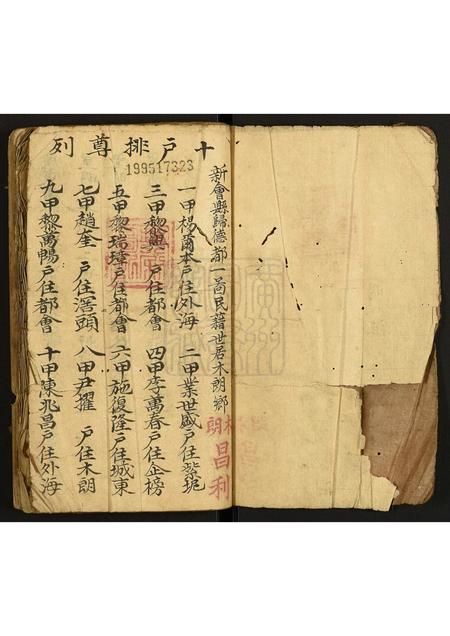 十戶排尊列
199517323
新會縣歸德都一啚民籍世居木朗鄉
一甲楊爾本戶住外海
二甲業世盛戶住紫坭
三甲黎興 戶住都會
四甲李萬春戶住企榜
五甲黎瑞璋戶住都會
六甲施復隆戶住城東
七甲趙奎 戶住滘頭
八甲尹擢 戶住木朗
九甲黎萬暢戶住都會
十甲陳兆昌戶住外海
木朗
昌利